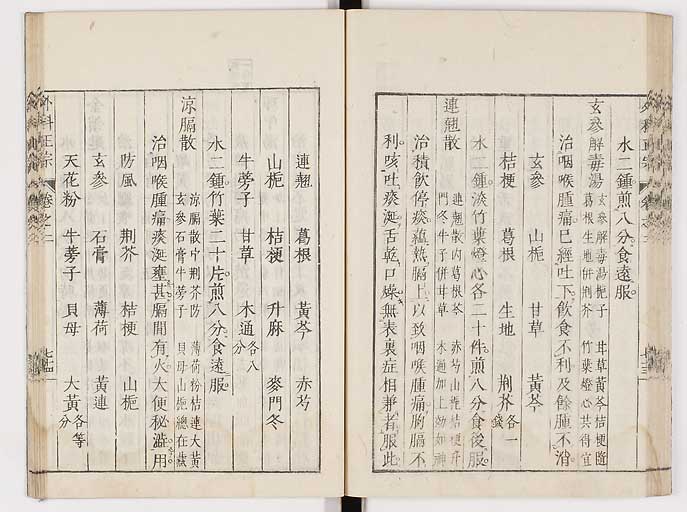 水二鍾煎八分食遠服
玄參解毒湯
玄參解毒湯梔子 甘草黃芩桔梗隨
葛根生地併荆芥 竹葉燈心共得宜
治咽喉腫痛已經吐下飲食不利及餘腫不消
玄參 山梔 甘草 黃芩
桔梗 葛根 生地 荆芥各一錢
水二鍾淡竹葉燈心各二十件煎八分食後服
連翹散
連翹散內葛根芩 赤芍山梔桔梗升
門冬牛子併甘草 木通加上効如神
治積飲停痰蘊熱膈上以致咽喉腫痛胸膈不
利咳吐痰涎舌乾口燥無表裏症相兼者服此
連翹 葛根 黃芩 赤芍
山梔 桔梗 升麻 麥門冬
牛蒡子 甘草 木通各八分
水二鍾竹葉二十片煎八分食遠服
涼膈散
涼膈散中荆芥防 薄荷粉桔連大黃
玄參石膏牛蒡子 貝母山梔總在
治咽喉腫痛痰涎壅甚膈間有火大便秘澁用
防風 荆芥 桔梗 山梔
玄參 石膏 薄荷 黃連
天花粉 牛蒡子 貝母 大黃各等分
外科正宗 卷之二 七十四